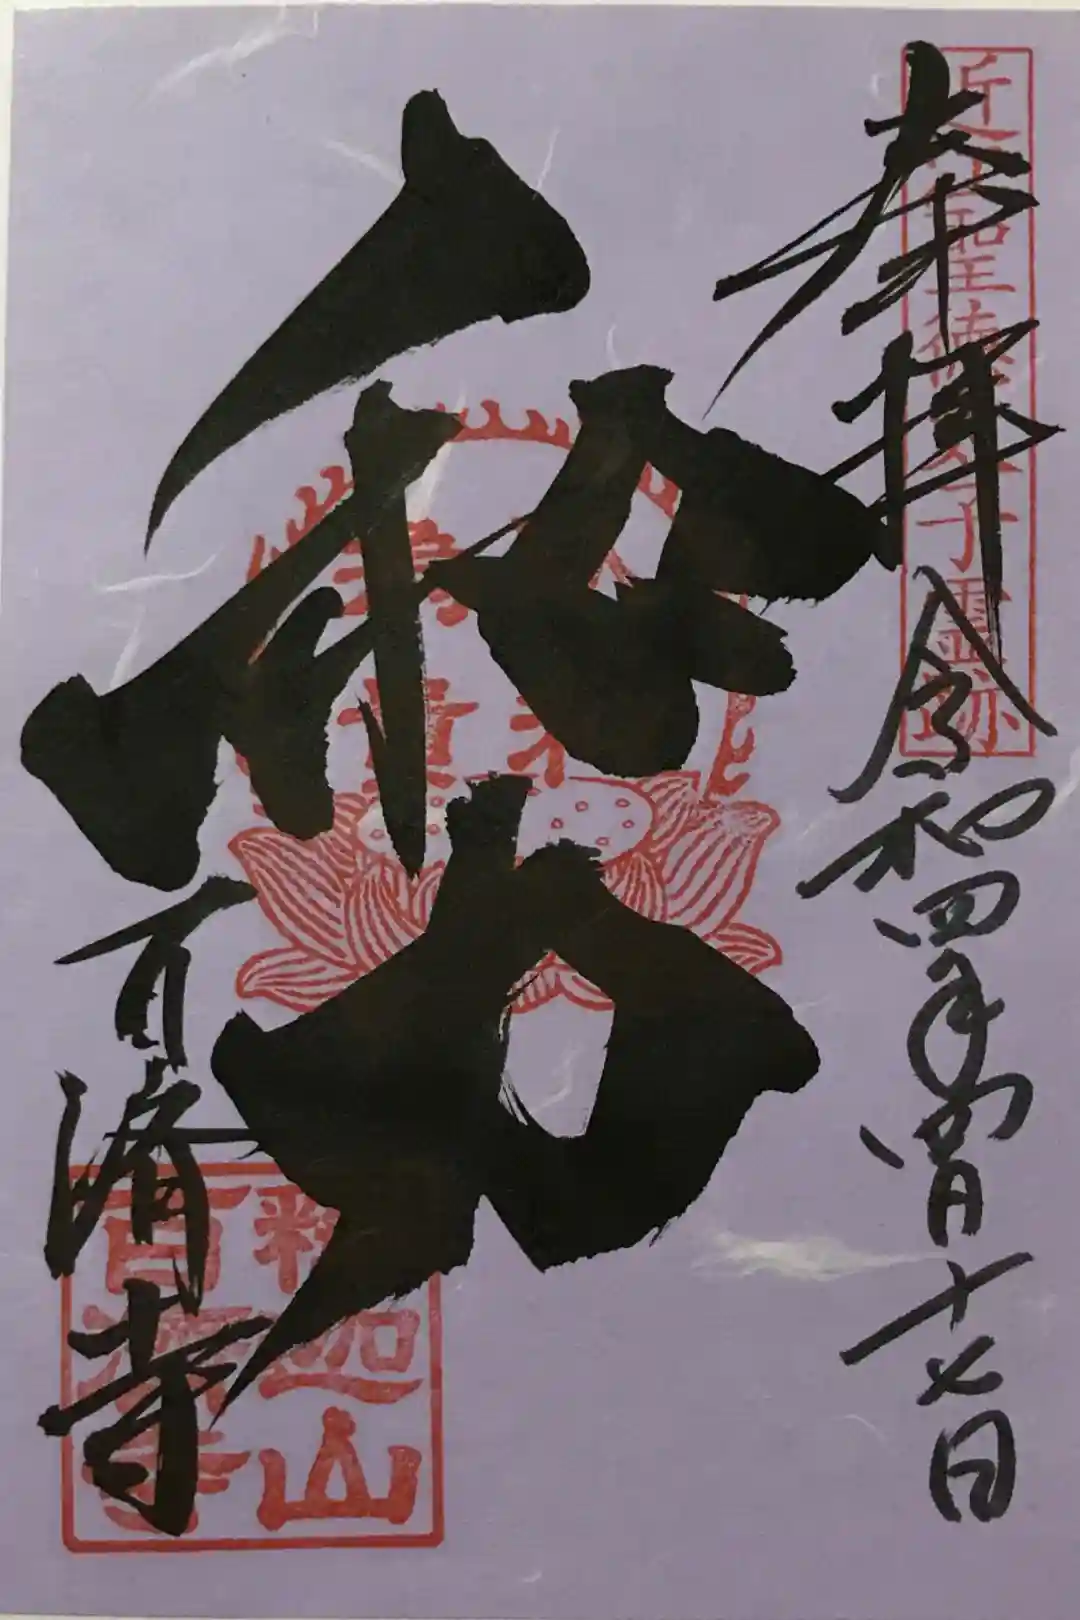 近江聖徳太子霊跡
奉拝 令和四年 月十七日
和力
百済寺
釈迦山
百済寺